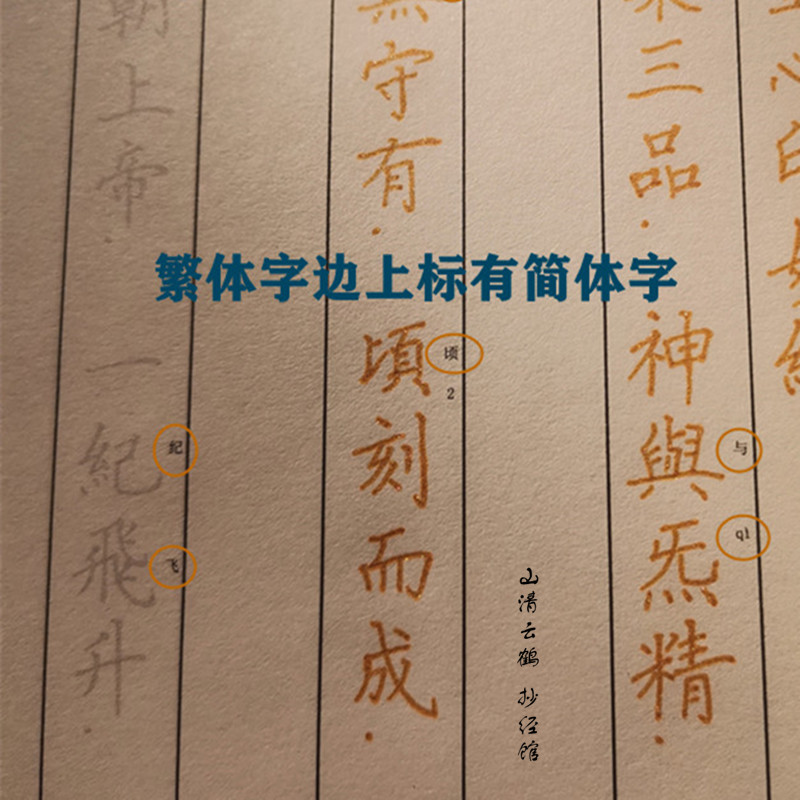 繁体字边上标有简体字
三品．神與炁精．
与
q1
守有．頃刻而成．
顷
2
朝上帝．一紀飛升．
纪
飞
山清云鹤 抄经馆